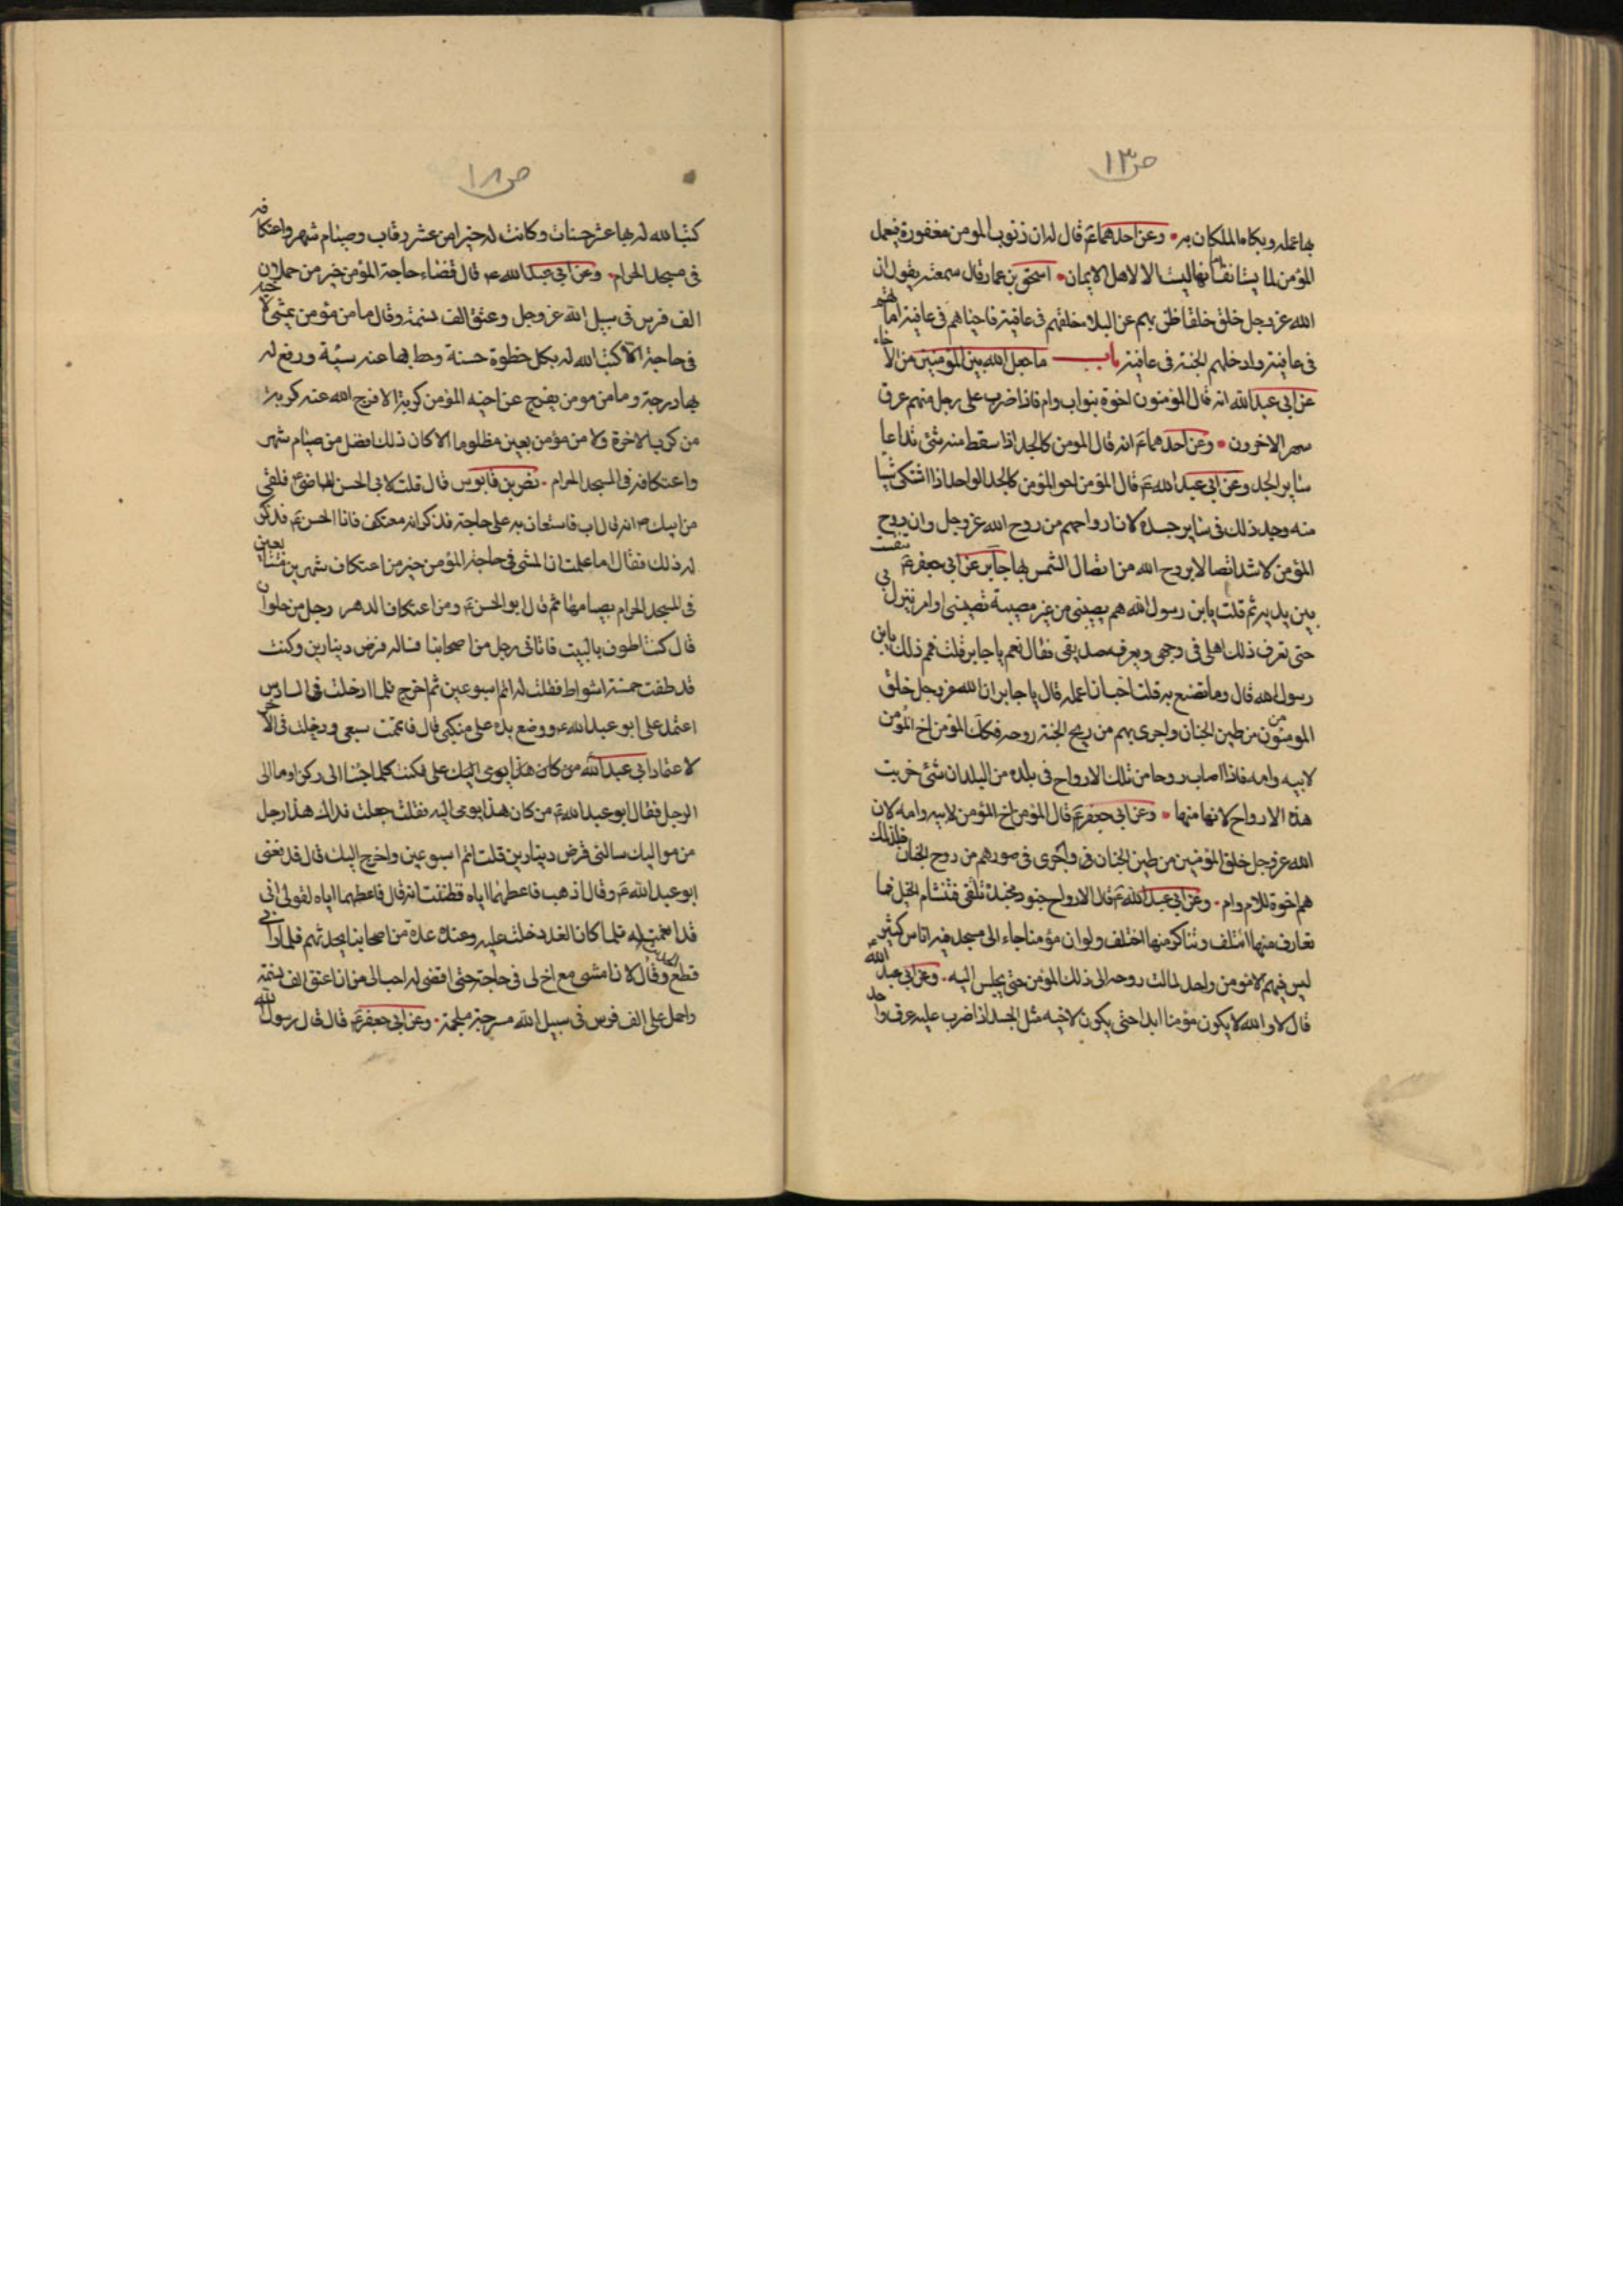 ص١٣
بها عمله ويكاه الملكان به وعن احدهما ع قال له ان ذنوب المومن مغفورة فيعمل
المؤمن لما يستانف اما انها ليست الا لاهل الايمان اسحق بن عمار قال سمعته يقول ان
الله عز وجل خلق خلقا ظن بهم عن البلاء خلقهم في عافية واحياهم في عافية واماتهم
في عافية وادخلهم الجنة في عافية باب ما جعل الله بين المؤمنين من الاخاء
عن ابي عبد الله انه قال المؤمنون اخوة بنو اب وام فاذا ضرب على رجل منهم عرق
سهر الاخرون وعن احدهما ع انه قال المومن كالجسد اذا سقط منه شئ تداعا
ساير الجسد وعن ابي عبد الله ع قال المؤمن اخو المؤمن كالجسد الواحد اذا اشتكى شيا
منه وجد ذلك في ساير جسده لان ارواحهم من روح الله عز وجل وان روح
المؤمن لاشد اتصالا بروح الله من اتصال الشمس بها جابر عن ابي جعفر ع تنفست
بين يديه ثم قلت يابن رسول الله هم يصيبني من غير مصيبة تصيبني او امر ينزل بي
حتى تعرف ذلك اهلي في وجهي ويعرفه صديقي فقال نعم يا جابر قلت فمم ذلك يابن
رسول الله قال وما تصنع به قلت احب ان اعمله قال يا جابر ان الله عز وجل خلق
المومنون من طين الجنان واجرى بهم من ريح الجنة روحه فكذلك المؤمن اخ المؤمن
لابيه وامه فاذا اصاب روحا من تلك الارواح في بلده من البلدان شئ حزنت
هذه الارواح لانها منها وعن ابي جعفر ع قال المؤمن اخ المؤمن لابيه وامه لان
الله عز وجل خلق المؤمنين من طين الجنان واجرى في صورهم من روح الجنان فلذلك
هم اخوة للام وام وعن ابي عبد الله ع قال الارواح جنود مجندة تلتقي فتتشام الخيل فما
تعارف منها ائتلف وتناكر منها اختلف ولو ان مؤمنا جاء الى مسجد فيه اناس كثير
ليس فيهم الا مومن واحد لمالت روحه الى ذلك المؤمن حتى يجلس اليه وعن ابي عبد الله
قال لا والله لا يكون مؤمنا ابدا حتى يكون لاخيه مثل الجسد اذا ضرب عليه عرق واحد
ص١٨
كتب الله له بها عشر حسنات وكانت له خيرا من عشر رقاب وصيام شهر واعتكافه
في مسجد الحرام وعن ابي عبد الله ع قال قضاء حاجة المؤمن خير من حملان
الف فرس في سبيل الله عز وجل وعتق الف نسمة وقال ما من مؤمن يمشي لاخيه
في حاجة الا كتب الله له بكل خطوة حسنة وحط بها عنه سيئة ورفع له
بها درجة وما من مومن يفرج عن اخيه المؤمن كربة الا فرج الله عنه كربة
من كرب الاخرة ولا من مؤمن يعين مظلوما الا كان ذلك افضل من صيام شهر
واعتكافه في المسجد الحرام نصر بن قابوس قال قلت لابي الحسن الماضي ع فلقي
من ابيك انه اتى اب فاستعان به على حاجة فذكر انه معتكف فاتا الحسن ع فذكر
له ذلك فقال اما علمت ان المشي في حاجة المؤمن خير من اعتكاف شهرين متتابعين
في المسجد الحرام بصيامها ثم قال ابو الحسن ع ومن اعتكاف الدهر رجل من حلوان
قال كنت اطوف بالبيت فاتاني رجل من اصحابنا فساله قرض دينارين وكنت
قد طفت خمسة اشواط فقلت له اتم اسبوعين ثم اخرج فلما دخلت في السادس
اعتمد على ابو عبد الله ع ووضع يده على منكبي قال فاتممت سبعي ودخلت في الاخر
لاعتماد ابي عبد الله من كان هذا يومي اليك علي فكنت كلما جئنا الى ركن اوما الى
الرجل فقال ابو عبد الله ع من كان هذا يومى اليه فقلت جعلت فداك هذا رجل
من مواليك سالني قرض دينارين قلت اتم اسبوعين واخرج اليك قال فدفعني
ابو عبد الله ع وقال اذهب فاعطهما اياه فظننت انه قال فاعطهما اياه لقولي اني
قد انعمت له فلما كان الغد دخلت عليه وعنده عدة من اصحابنا يحدثهم فلما راني
قطع الحديث وقال لان امشي مع اخ لي في حاجة حتى اقضي له احب الي من ان اعتق الف نسمة
واحمل على الف فرس في سبيل الله مسرجة ملجمة وعن ابي جعفر ع قال قال رسول الله